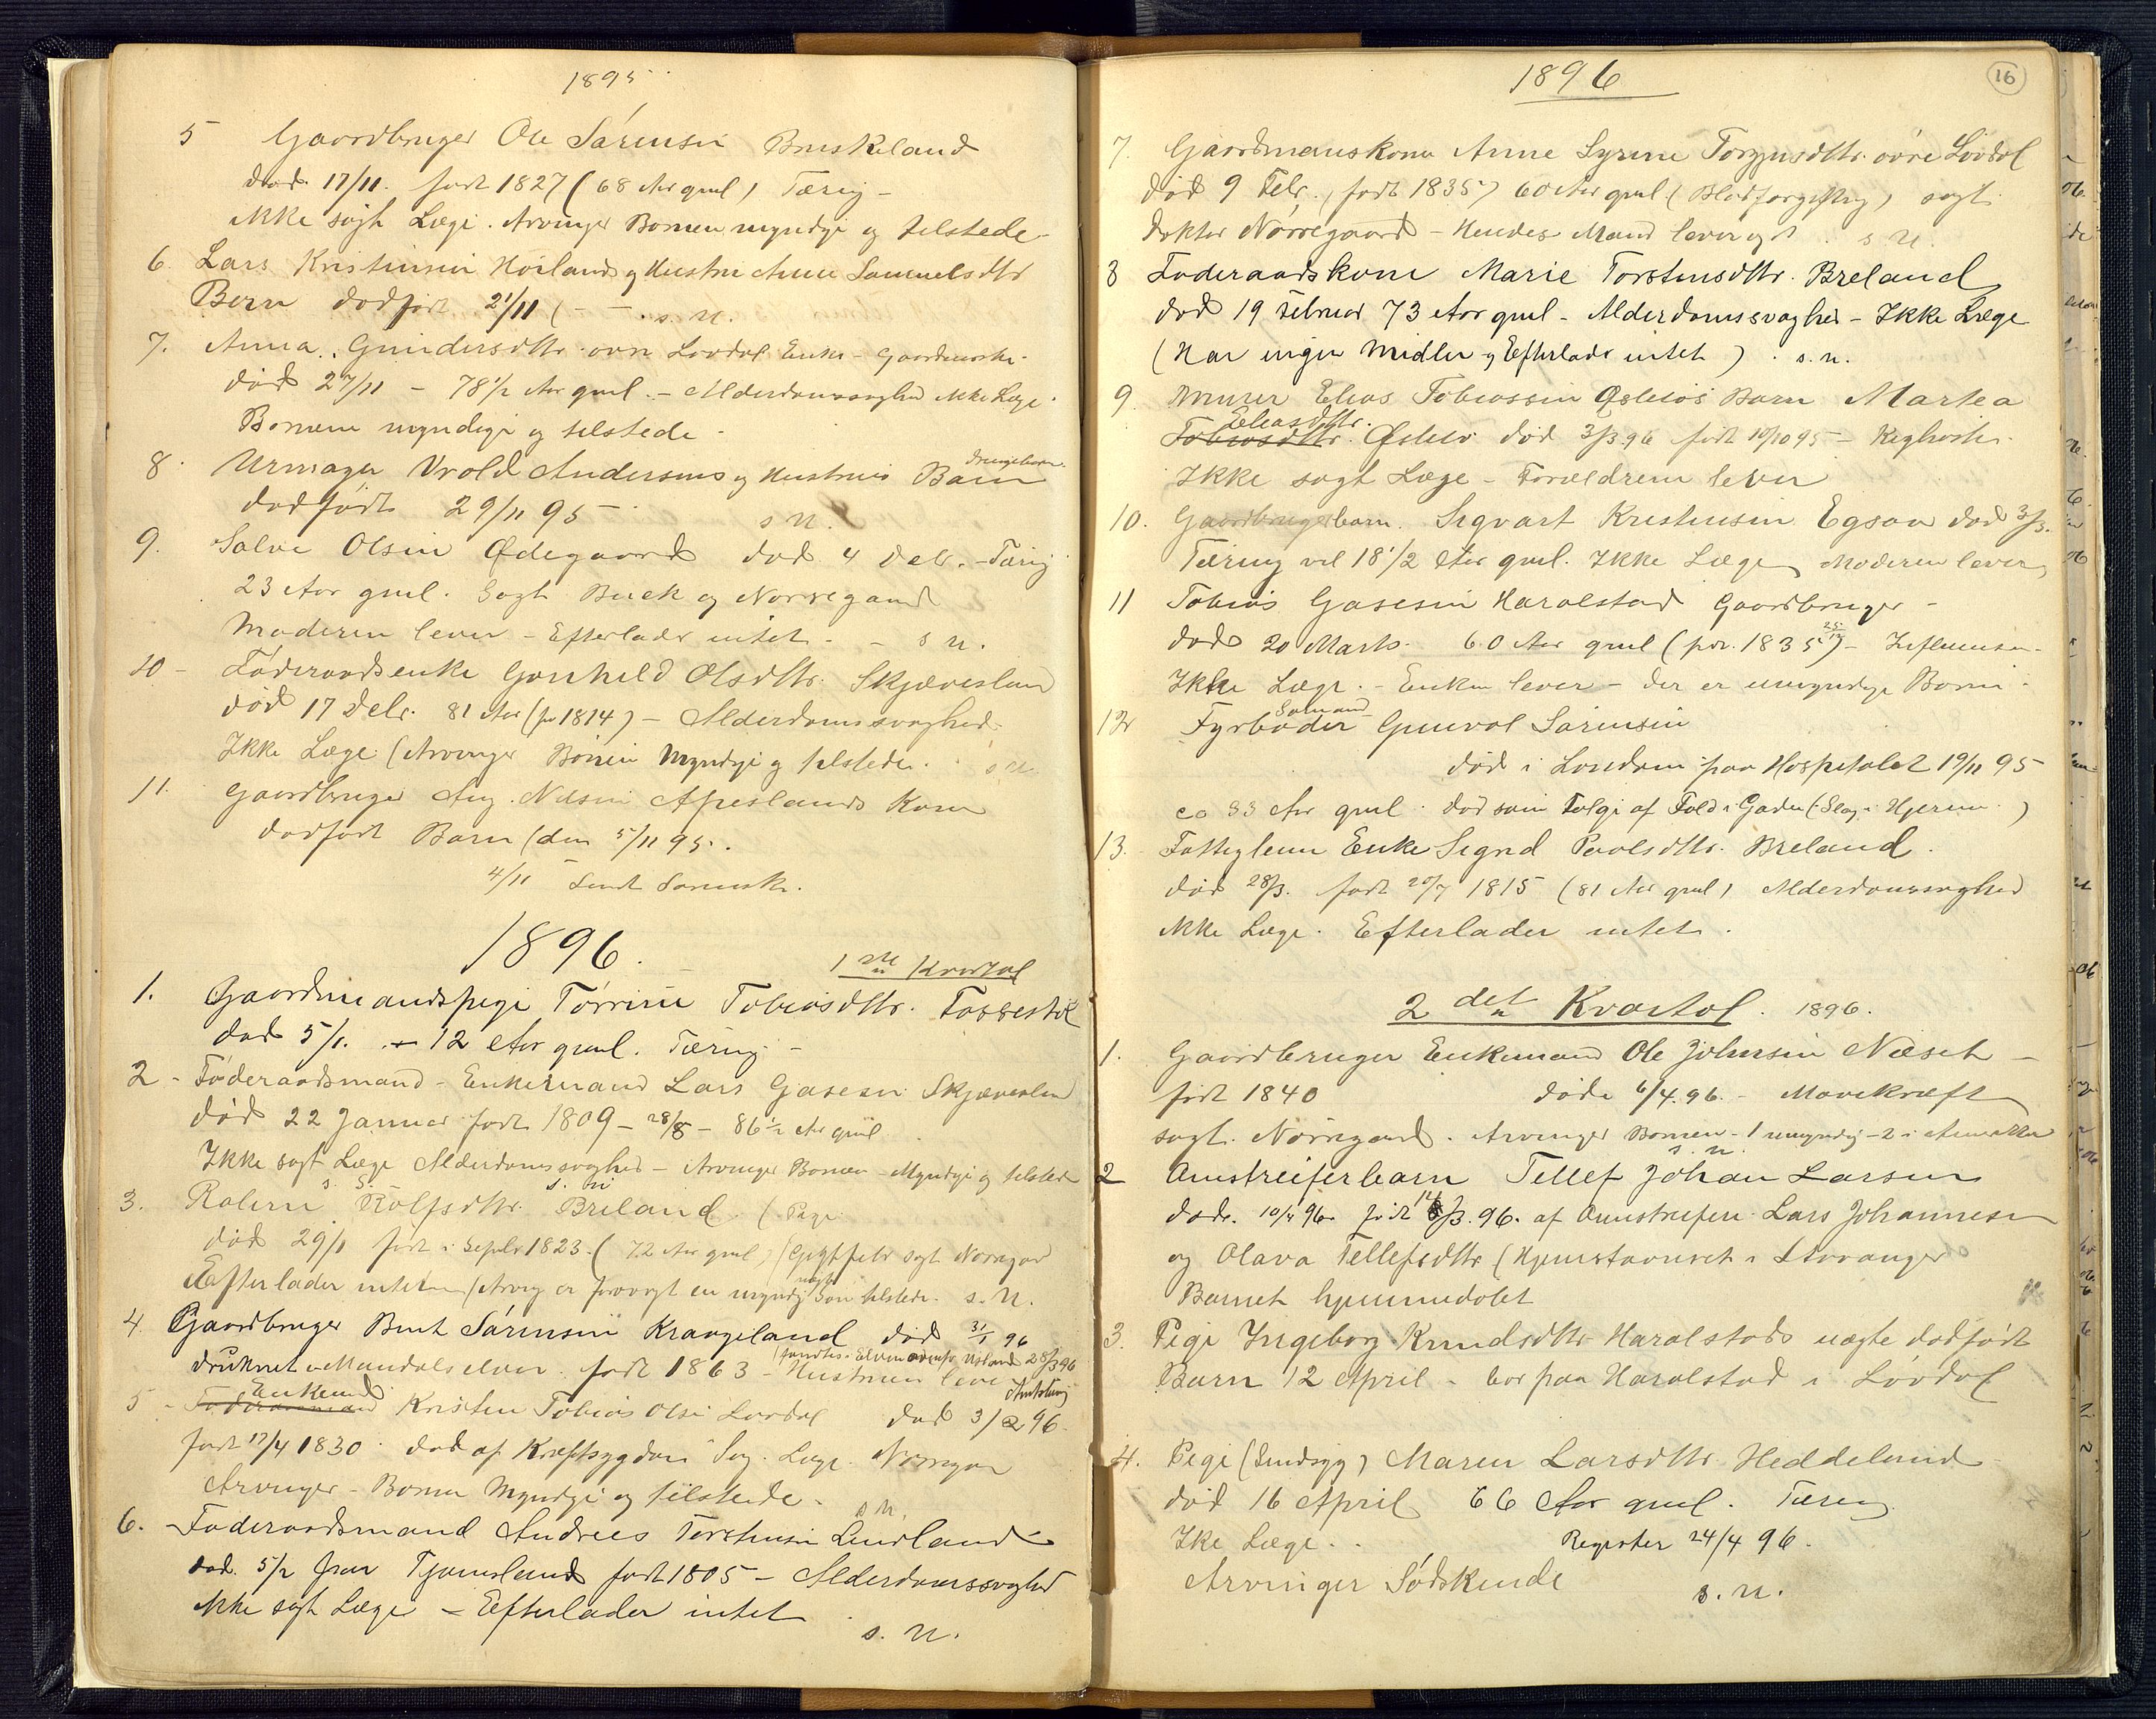 1895
5 Gaardbruger Ole Sørensen Bruskeland
død 17/11. født 1827 (68 Aar gml) Tæring –
ikke søgt Læge. Arvinger Børnene myndige og tilstede
6. Lars Kristensen Høiland og Hustru Anne Samuelsdtr
Børn dødfødt 21/11 ( – – . s. n.
7. Anna Gundersdtr. øvre Løvdal Enke – Gaardmands
død 27/11 – 78 1/2 Aar gml. – Alderdomssvaghed ikke Læge.
Børnene myndige og tilstede –
8. Urmager Vrold Andersens og Hustrus Barn drengebarn
dødfødt 29/11 95 – s n.
9. Salve Olsen Ødegaard død 4 Decbr. – Tæring
23 Aar gml. Søgt Buck og Nørregaard
Moderen lever – Efterlader intet – – s n.
10 – Føderaadsenke Gunhild Olsdtr. Skjævesland
død 17 Decbr. 81 Aar (fø 1814) – Alderdomssvaghed
Ikke Læge (Arvinger Børnene Myndige og tilstede. s n
11. Gaardbruger Aug. Nilsen Apeslands Kone
dødfødt Barn (den 5/11 95.
4/11 Sendt Sorensk.
1896.
1ste Kvartal
1. Gaardmandspige Tørrine Tobiasdtr. Fossestøl
død 5/1. – 12 Aar gml. Tæring –
2 – Føderaadsmand – Enkemand Lars Gasesen Skjævesland
død 22 Januar født 1809 – 28/8 – 86 1/2 Aar gml
Ikke søgt Læge Alderdomssvaghed – Arvinger Børnene – Myndige og tilstede
s. n
3. Rolfsdtr. Breland. (Pige
død 29/1 født i Septbr 1823. (72 Aar gml) (Gigtfeber søgt Nørregaard
Efterlader intet (Arving er forøvrigt en myndig uægte Søn tilstede. s. n.
4. Gaardbruger Bent Sørensen Krageland død 31/1 96
druknet i Mandalselven. født 1863 – Hustruen lever
(fundtes i Elven nedenfor Usland 28/3 96
5 – Føderaadsmand Enkemand Kristen Tobias Olsen Løvdal død 3/2 96.
født 17/4 1830. død af Kræftsygdom Søg. Læge Nørregaard
Arvinger – Børnene Myndige og tilstede. s n.
6. Føderaadsmand Andreas Torstensen Lindland
død. 5/2 paa Tjomsland født 1805 – Alderdomssvaghed
ikke søgt Læge – Efterlader intet
s. n.
1896
16
7. Gaardmandskone Anne Syrine Torgrimsdtr. øvre Løvdal
død 9 Febr. (født 1835) 60 Aar gml (Blodforgiftning) søgt
doktor Nørregaard – Hendes Mand lever og s n.
8 Føderaadskone Marie Torstensdtr. Breland
død 19 Februar 73 Aar gml – Alderdomssvaghed – Ikke Læge
(Har ingen Midler og Efterlader intet) . s. n.
9. Murer Elias Tobiassen Øslebø's Barn Martea
Tobiasdtr. Eliasdtr. Øslebø død 3/3 96 født 10/10 95 – Kighoste.
Ikke søgt Læge – Forældrene lever
10. Gaardbrugerbarn. Sigvart Kristensen Egsaa død 3/3.
Tæring vel 18 1/2 Aar gml. Ikke Læge Moderen lever,
11 Tobias Gasesen Haralstad Gaardbruger –
død 20 Marts. 60 Aar gml (før. 1835 25/12) – Influensa –
Ikke Læge. – Enken lever – der er umyndige Børn.
12 Fyrbøder Sømand Gunval Sørensen
død i London paa Hospitalet 19/11 95
ca 33 Aar gml. død som Følge af Fald i Gaden (Slag i Hjernen.)
13. Fattiglem Enke Sigrid Paalsdtr. Breland.
død 28/3. født 20/7 1815 (81 Aar gml) Alderdomssvaghed
ikke Læge. Efterlader intet.
2det Kvartal. 1896.
1. Gaardbruger Enkemand Ole Johnsen Næset –
født 1840 døde 6/4. 96. – Mavekræft
søgt. Nørregaard. Arvinger Børnene – 1 umyndig – 2 i Amerikka
s. n.
2 Omstreiferbarn Tellef Johan Larsen
døde. 10/4 96. født 14/3. 96. af Omstreifere Lars Johannesen
og Olava Tellefsdtr (Hjemstavnsret i Stavanger
Barnet hjemmedøbt
3. Pige Ingeborg Knudsdtr Haralstads uægte dødfødt
Barn 12 April – bor paa Haralstad i Løvdal
4. Pige (Sindssyg) Maren Larsdtr. Heddeland
død 16 April 66 Aar gml. Tæring
Ikke Læge. . Register 24/4 96.
Arvinger Sødskende s. n.